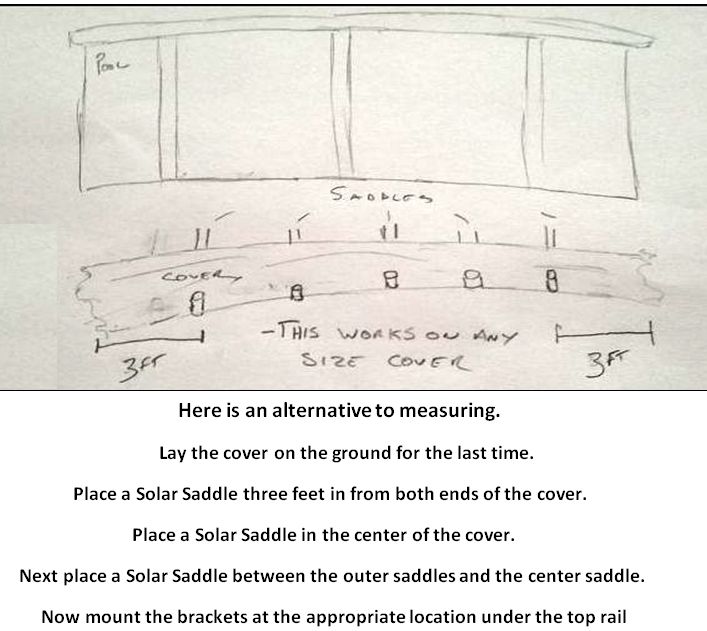 POOL
SADDLES
COVER
-THIS WORKS ON ANY
SIZE COVER
3FT
3FT
Here is an alternative to measuring.
Lay the cover on the ground for the last time.
Place a Solar Saddle three feet in from both ends of the cover.
Place a Solar Saddle in the center of the cover.
Next place a Solar Saddle between the outer saddles and the center saddle.
Now mount the brackets at the appropriate location under the top rail